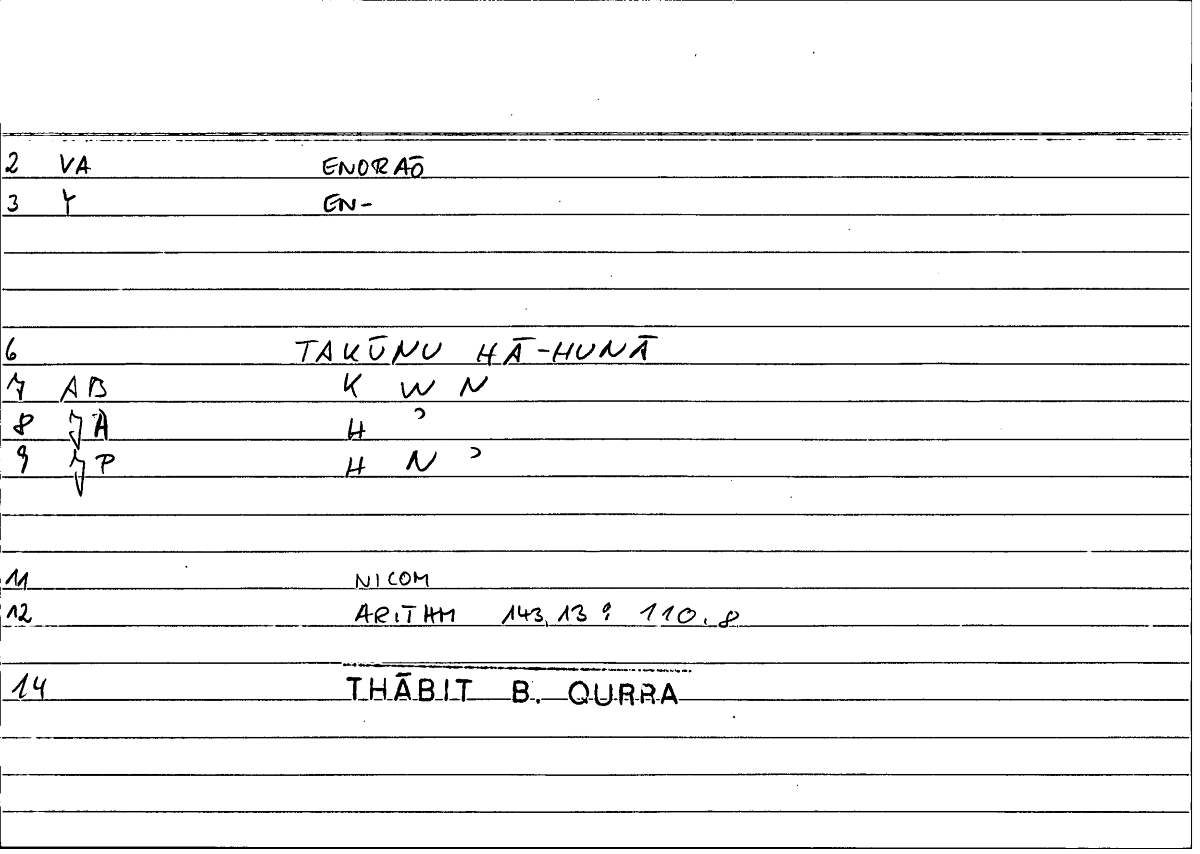 2 VA ENORAŌ
3 Y EN-
6 TAKŪNU HĀ-HUNĀ
7 AB K W N
8 JA H ʾ
9 JP H N ʾ
11 NICOM
12 ARITHM 143,13 : 110.8
14 THĀBIT B. QURRA